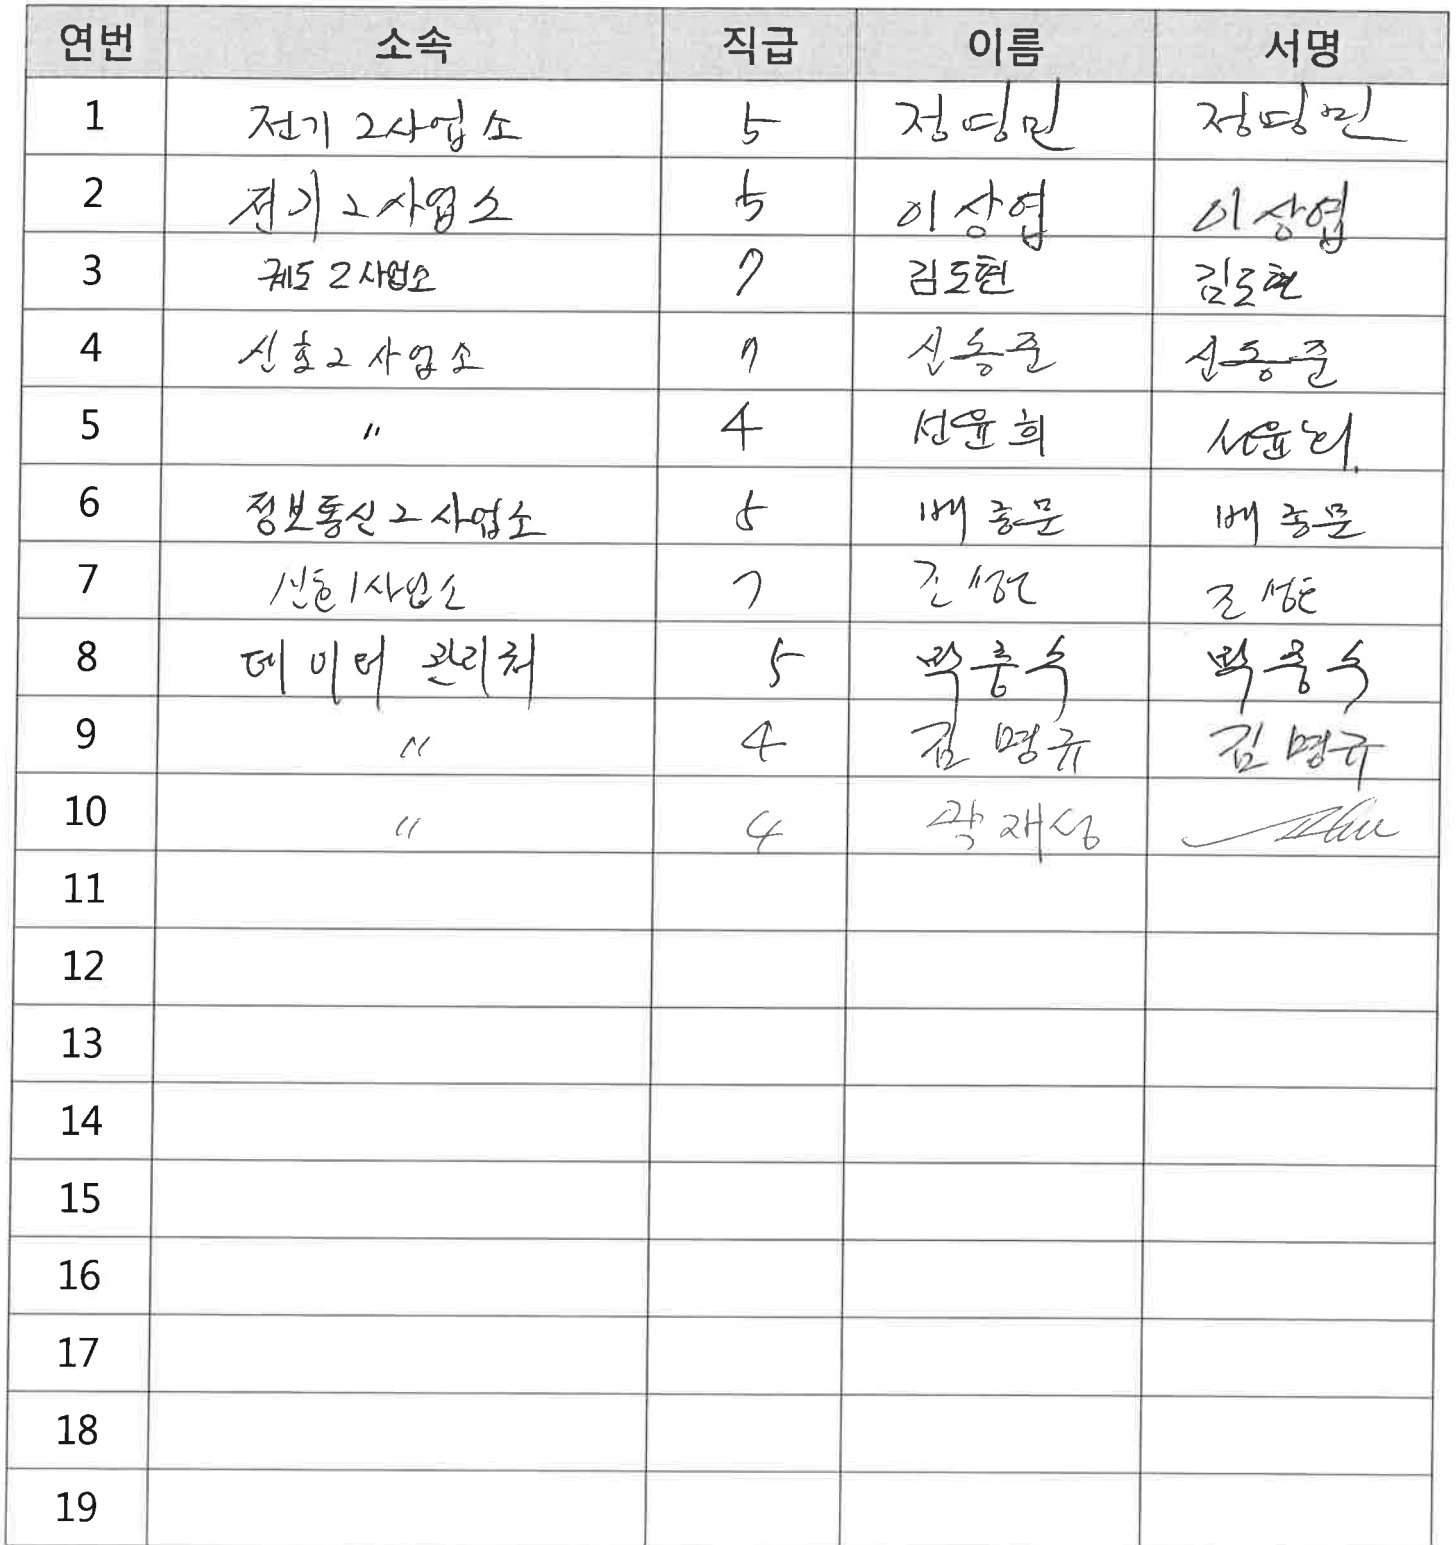 연번 소속 직급 이름 서명
1 전기2사업소 5 정영민 정영민
2 전기2사업소 5 이상엽 이상엽
3 궤도2사업소 7 김도현 김도현
4 신호2사업소 7 신동준 신동준
5 〃 4 선윤희
6 정보통신2사업소 5 배종문 배종문
7 신호1사업소 7 조성
8 데이터 관리처 5 박충수 박충수
9 〃 4 김명규 김명규
10 〃 4 곽재성
11
12
13
14
15
16
17
18
19